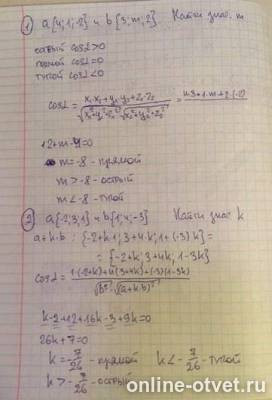 1) a{4;1;-2} и b{3;m;2}. Найти знач. m
острый cosα>0
прямой cosα=0
тупой cosα<0
cosα = x₁x₂+y₁y₂+z₁z₂ / √x₁²+y₁²+z₁² · √x₂²+y₂²+z₂² = 4·3+1·m+2·(-2)
12+m-4=0
m=-8 - прямой
m>-8 - острый
m<-8 - тупой
2) a{-2;3;1} и b{1;4;-3} Найти знач k
a+k·b : {-2+k·1; 3+4·k; 1+(-3)k} =
= {-2+k; 3+4k; 1-3k}
cosα = 1·(-2+k)+4(3+4k)+(-3)(1-3k) / √b² · √(a+k·b)²
k-2+12+16k-3+9k=0
26k+7=0
k=-7/26 - прямой k<-7/26 - тупой
k>-7/26 - острый
online-otvet.ru